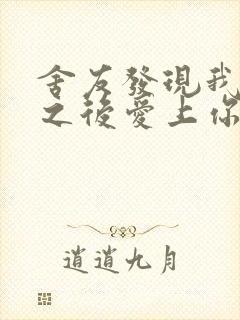 舍友發現我
之後愛上你
逍遙九月